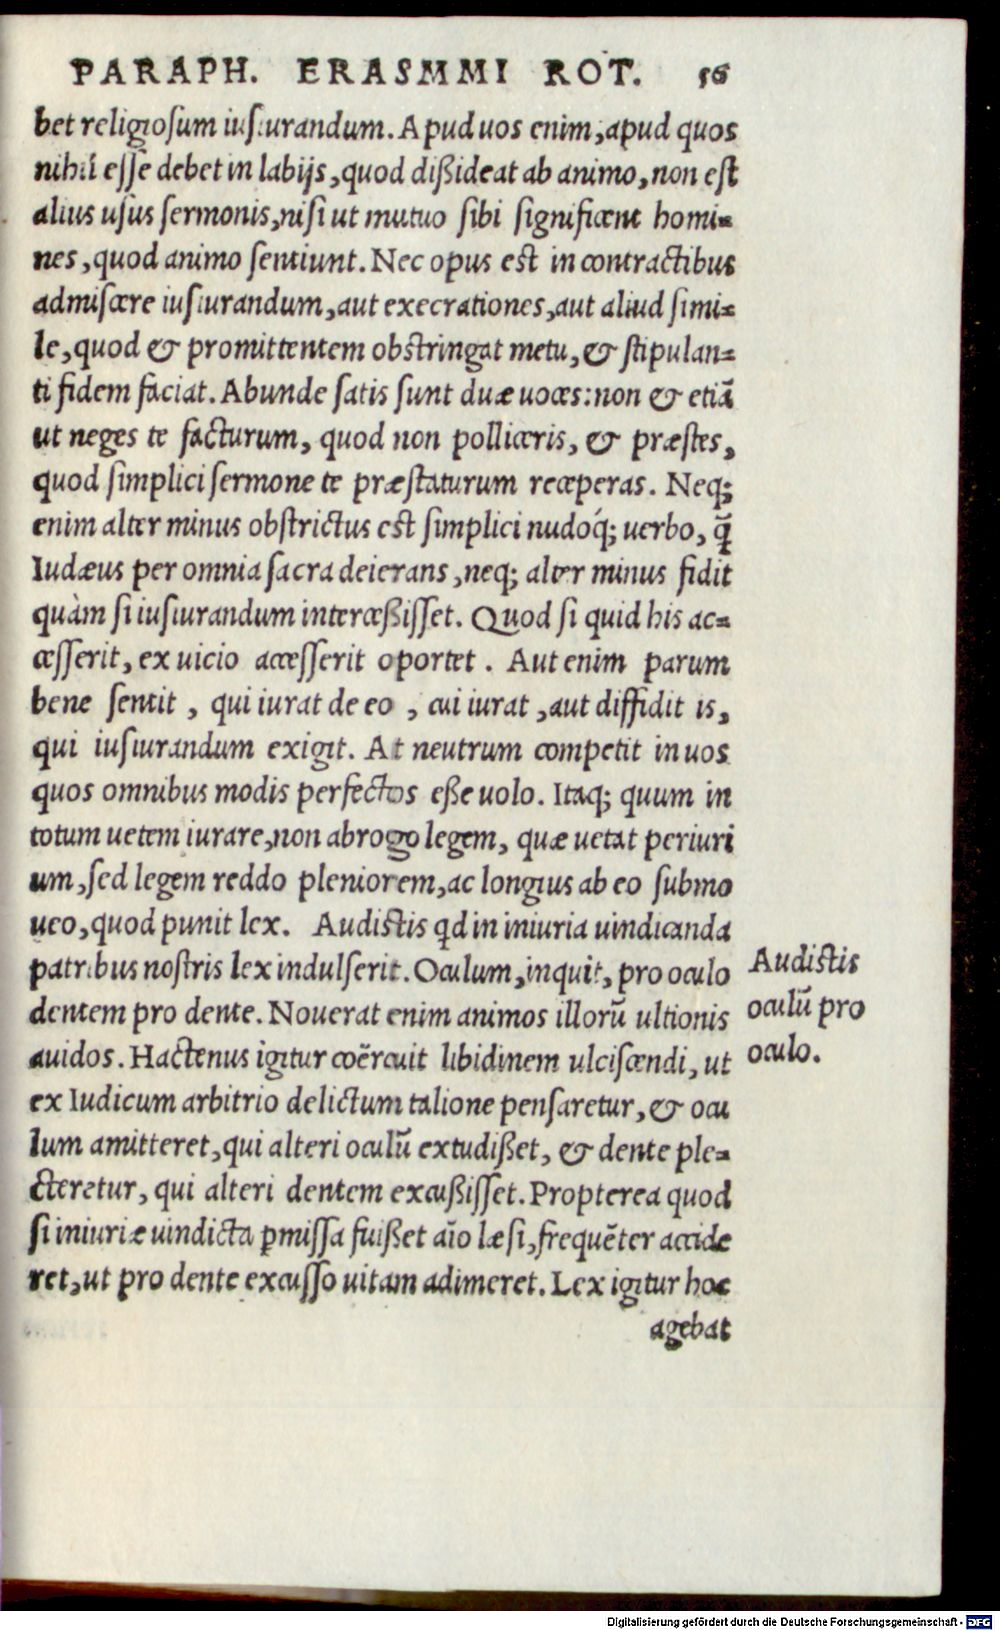 PARAPH. ERASMMI ROT. 56
bet religiosum iusiurandum. Apud uos enim, apud quos
nihil esse debet in labijs, quod dißideat ab animo, non est
alius usus sermonis, nisi ut mutuo sibi significent homi=
nes, quod animo sentiunt. Nec opus est in contractibus
admiscere iusiurandum, aut execrationes, aut aliud simi=
le, quod & promittentem obstringat metu, & stipulan=
ti fidem faciat. Abunde satis sunt duæ uoces: non & etiā
ut neges te facturum, quod non polliceris, & præstes,
quod simplici sermone te præstaturum receperas. Neq;
enim alter minus obstrictus est simplici nudoq́; uerbo, q̄
Iudæus per omnia sacra deierans, neq; alter minus fidit
quàm si iusiurandum interceßisset. Quod si quid his ac=
cesserit, ex uicio accesserit oportet. Aut enim parum
bene sentit, qui iurat de eo, cui iurat, aut diffidit is,
qui iusiurandum exigit. At neutrum competit in uos
quos omnibus modis perfectos eße uolo. Itaq; quum in
totum uetem iurare, non abrogo legem, quæ uetat periuri
um, sed legem reddo pleniorem, ac longius ab eo submo
ueo, quod punit lex. Audistis qd in iniuria uindicanda
patribus nostris lex indulserit. Oculum, inquit, pro oculo
dentem pro dente. Nouerat enim animos illorū ultionis
auidos. Hactenus igitur coërcuit libidinem ulciscendi, ut
ex Iudicum arbitrio delictum talione pensaretur, & ocu
lum amitteret, qui alteri oculū extudißet, & dente ple=
cteretur, qui alteri dentem excußisset. Propterea quod
si iniuriæ uindicta ꝑmissa fuißet aīo læsi, frequēter accide
ret, ut pro dente excusso uitam adimeret. Lex igitur hoc
agebat
Audistis
oculū pro
oculo.
Digitalisierung gefördert durch die Deutsche Forschungsgemeinschaft - DFG